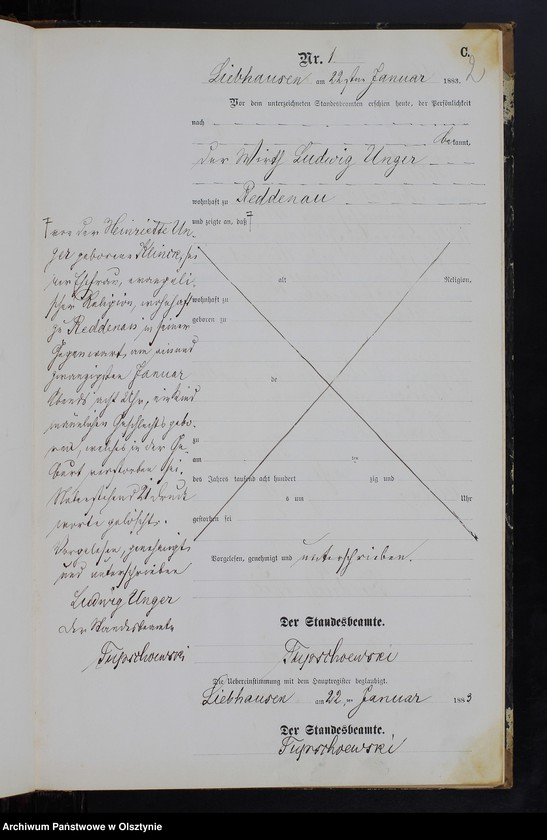 C.
Nr. 1
2
Liebhausen am 22 ten Januar 1883.
Vor dem unterzeichneten Standesbeamten erschien heute, der Persönlichkeit
nach
bekannt,
der Wirth Ludwig Unger
wohnhaft zu Reddenau
und zeigte an, daß
von der Henriette Un-
ger geborene Klinck, sei
ner Ehefrau, evangeli-
scher Religion, wohnhaft
zu Reddenau in seiner
Gegenwart, am einund
zwanzigsten Januar
Abends acht Uhr, ein Kind
männlichen Geschlechts gebo-
ren, welches in der Ge-
burt verstorben sei.
Nebenstehend 21 Druck
worte gelöscht.
Vorgelesen, genehmigt
und unterschrieben
Ludwig Unger
Der Standesbeamte
alt Religion,
wohnhaft zu
geboren zu
de
zu
am
des Jahres tausend acht hundert zig und
s um Uhr
gestorben sei
Vorgelesen, genehmigt und unterschrieben.
Der Standesbeamte.
Zur Uebereinstimmung mit dem Hauptregister beglaubigt.
Liebhausen am 22 ten Januar 1883
Der Standesbeamte.
Archiwum Państwowe w Olsztynie